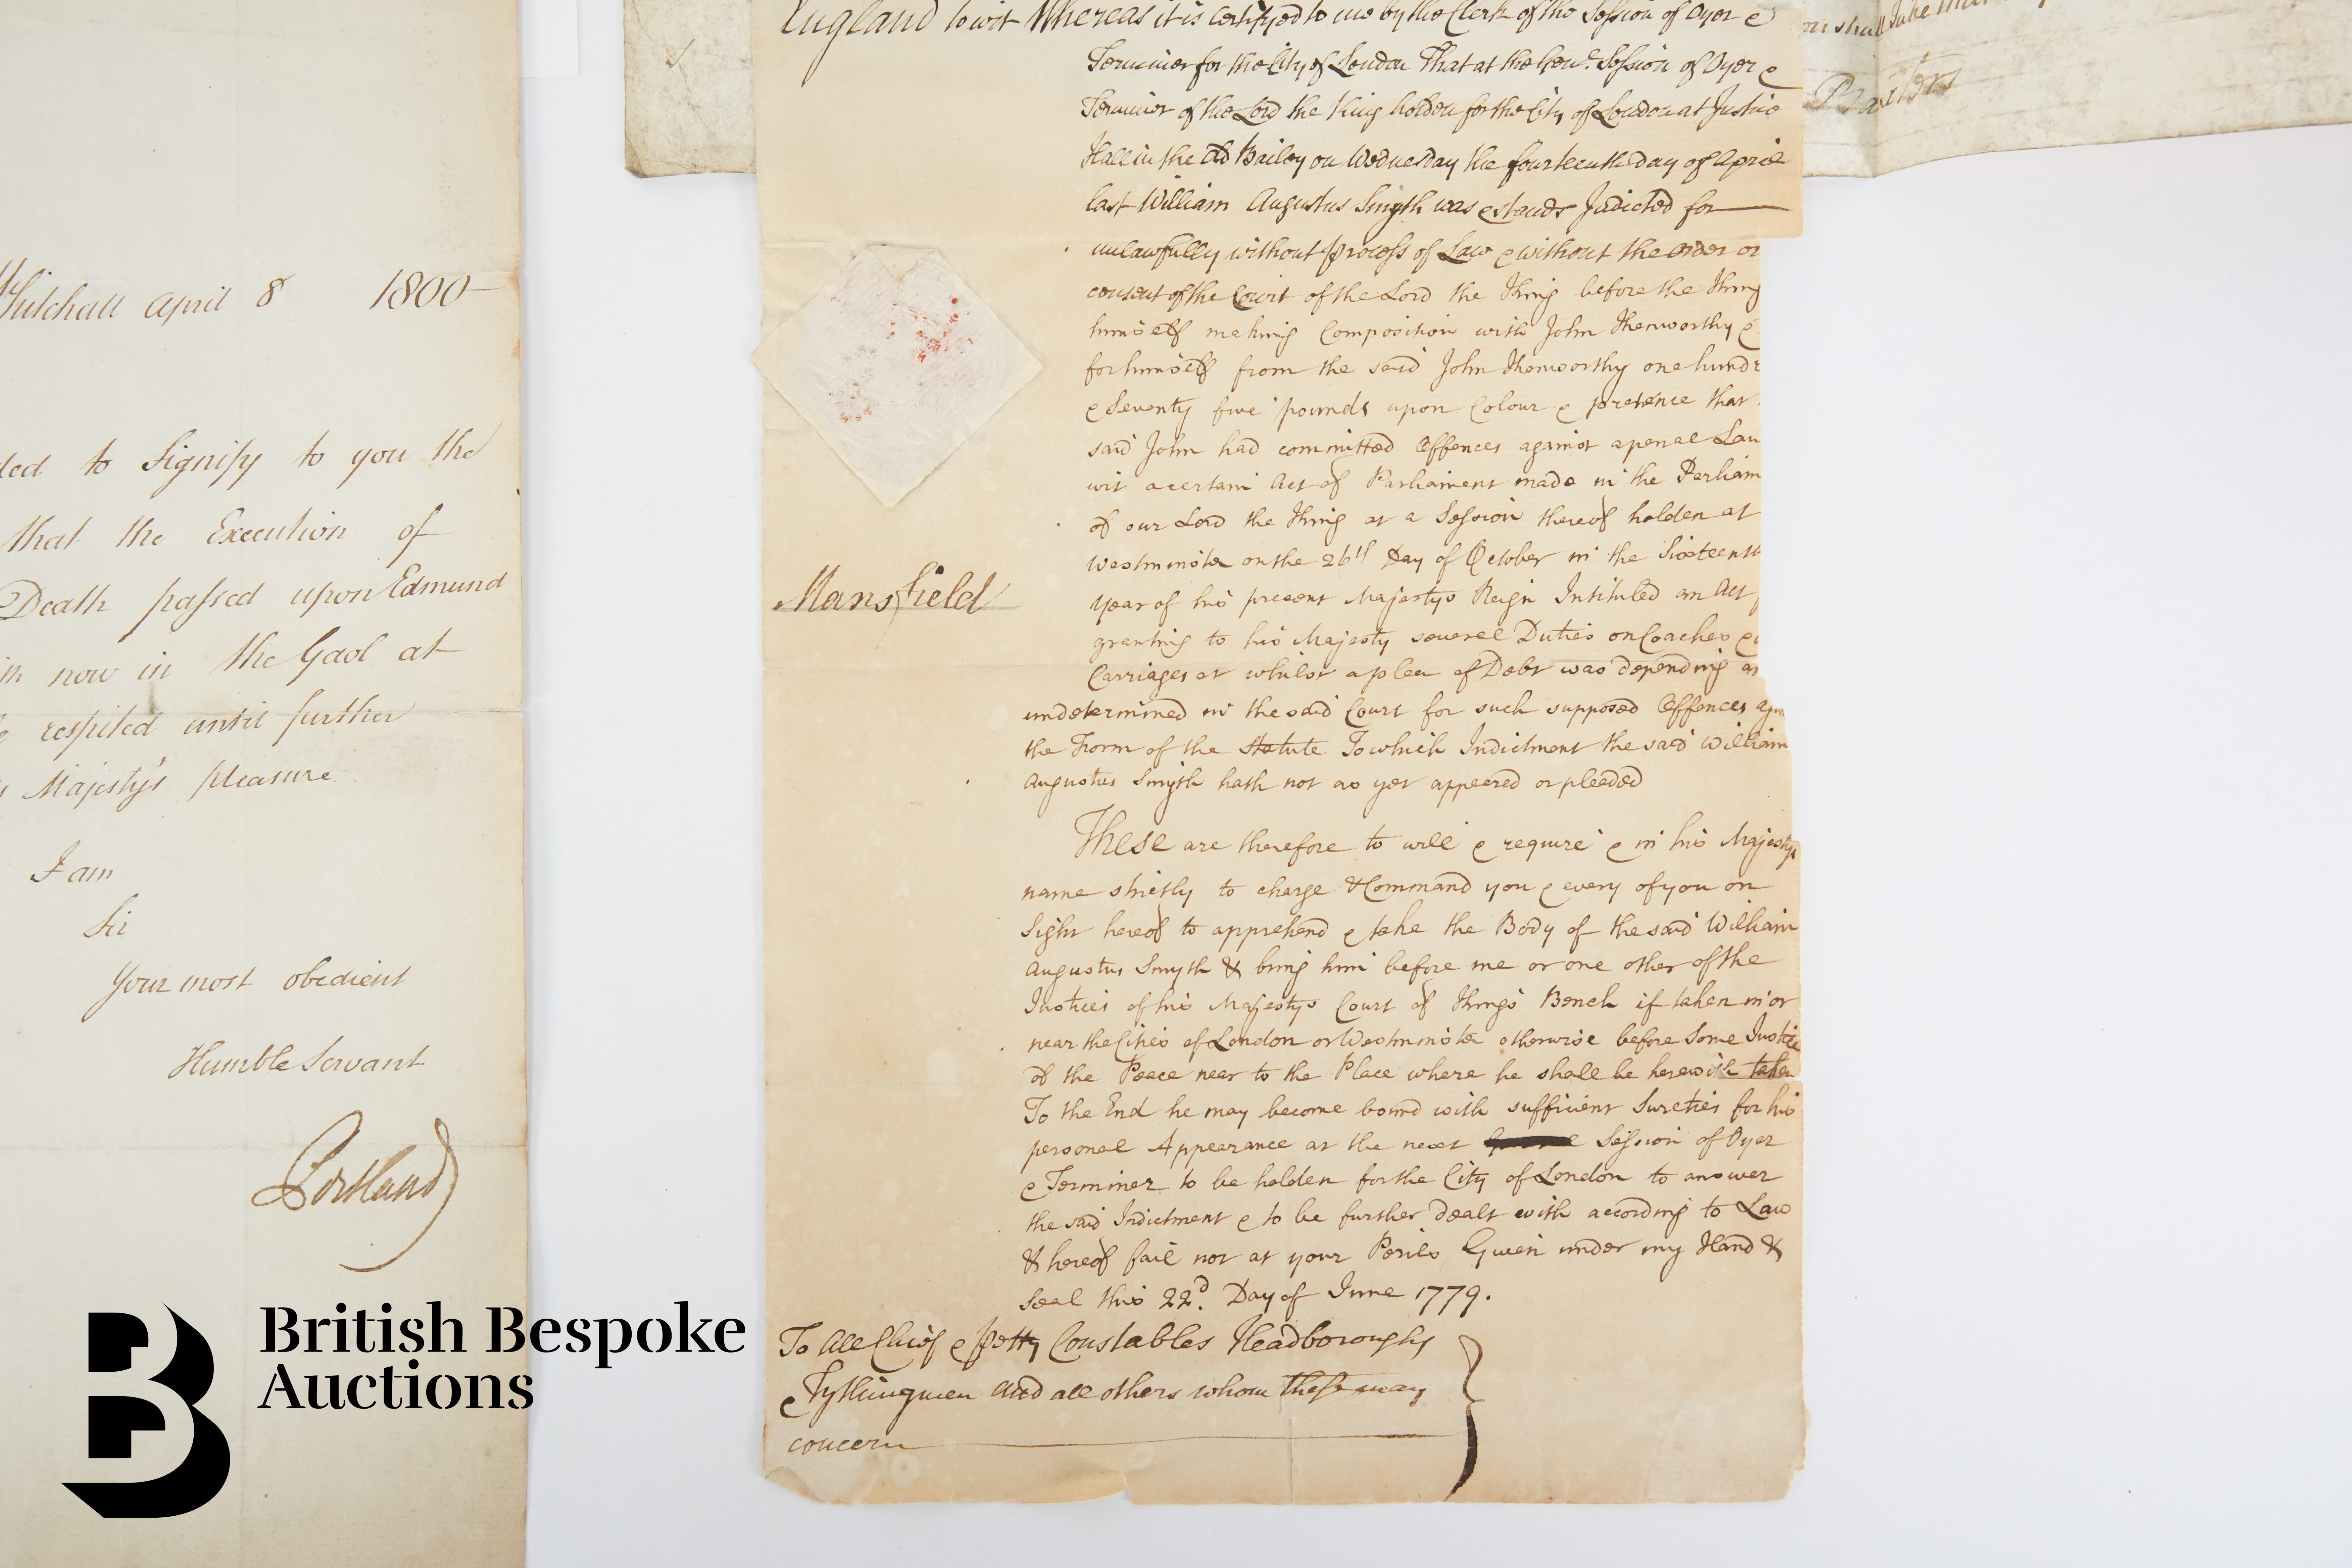 Whitehall April 8 1800
ded to Signify to you the
that the Execution of
Death passed upon Edmund
in now in the Gaol at
e respited until further
s Majesty's pleasure
I am
Sir
Your most obedient
Humble Servant
Portland
England to wit Whereas it is Certifyed to me by the Clerk of the Session of Oyer &
Terminer for the City of London That at the Genl. Session of Oyer &
Terminer of the Lord the King holden for the City of London at Justice
Hall in the Old Bailey on Wednesday the fourteenth day of April
last William Augustus Smyth was & stands Indicted for
unlawfully without process of Law & without the Order or
consent of the Court of the Lord the King before the King
himself making Composition with John Kenworthy &
for himself from the said John Kenworthy one hundr
& Seventy five pounds upon Colour & pretence that
said John had committed Offences against a penal Law
wit a certain Act of Parliament made in the Parliam
of our Lord the King at a Session thereof holden at
Westminster on the 26th Day of October in the Sixteenth
year of his present Majestys Reign Intituled an Act
granting to his Majesty several Duties on Coaches &
Carriages et whilst a plea of Debt was depending an
undetermined in the said Court for such supposed Offences agn
the Form of the Statute To which Indictment the said William
Augustus Smyth hath not as yet appeared or pleaded
Mansfield
These are therefore to will & require & in his Majestys
name strictly to charge & Command you & every of you on
Sight hereof to apprehend & take the Body of the said William
Augustus Smyth & bring him before me or one other of the
Justices of his Majestys Court of Kings Bench if taken in or
near the Cities of London or Westminster otherwise before Some Justice
of the Peace near to the Place where he shall be herewith taken
To the End he may become bound with sufficient Sureties for his
personal Appearance at the next Session of Oyer
& Terminer to be holden for the City of London to answer
the said Indictment & to be further dealt with according to Law
& hereof fail not at your Perils Given under my Hand &
Seal this 22d. Day of June 1779.
To All Chief & petty Constables Headboroughs
& Tythingmen And all others whom these may
concern
British Bespoke
Auctions